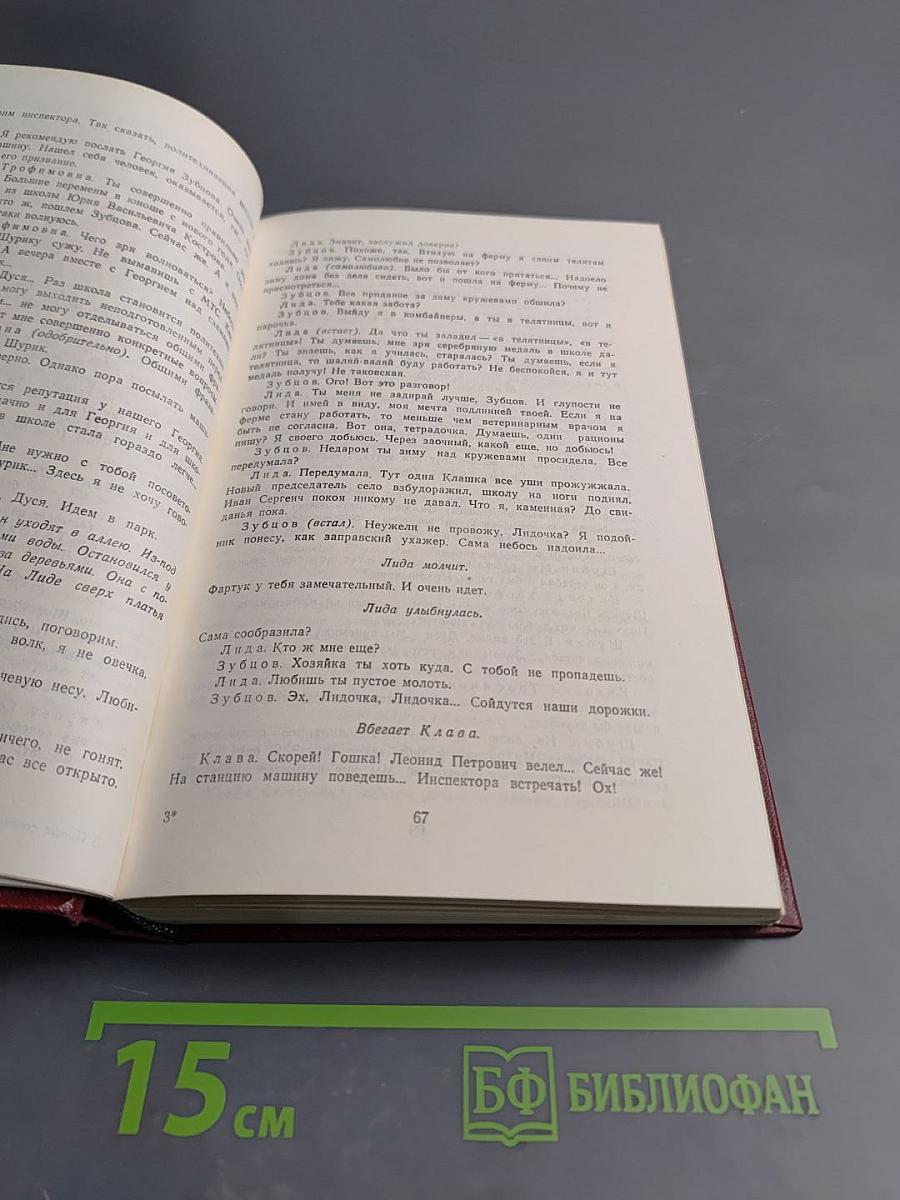 им инспектора. Так сказать, политехнизация
Я рекомендую послать Георгия Зубцова. Очень
ашину. Нашел себя человек, оказывается,
его призвание.
Трофимовна. Ты совершенно
Большие перемены в юноше с нового года
из школы Юрия Васильевича Кострова
то ж, пошлем Зубцова. Сейчас же. А
таки волнуюсь.
фимовна. Чего зря волноваться?
Шурику сужу. Не выманишь с МТС.
А вечера вместе с Георгием над
к...
Дуся... Раз школа становится
могу выходить неподготовленным
м... не могу отделываться общими
т мне совершенно конкретные вопросы
на (одобрительно). Общими
Шурик.
ерно. Однако пора посылать
тся репутация у нашего Георгия.
дачно и для Георгия и для
в школе стала гораздо легче.
Мне нужно с тобой посовето-
урик... Здесь я не хочу гово-
Дуся. Идем в парк.
н уходят в аллею. Из-под
ми воды. Остановился у
за деревьями. Она с по-
На Лиде сверх платья
дись, поговорим.
волк, я не овечка.
чевую несу. Люби-
ичего, не гонят.
ас все открыто.
Лида. Значит, заслужил доверие?
Зубцов. Похоже, так. Втихую на ферму к своим телятам
ходишь? Я вижу. Самолюбие не позволяет?
Лида (самолюбиво). Было бы от кого прятаться... Надоело
зиму дома без дела сидеть, вот и пошла на ферму... Почему не
присмотреться...
Зубцов. Все приданое за зиму кружевами обшила?
Лида. Тебе какая забота?
Зубцов. Выйду я в комбайнеры, а ты в телятницы, вот и
парочка.
Лида (встает). Да что ты заладил — «в телятницы», «в те-
лятницы»! Ты думаешь, мне зря серебряную медаль в школе да-
ли? Ты знаешь, как я училась, старалась? Ты думаешь, если я
телятница, то шаляй-валяй буду работать? Не беспокойся, я и тут
медаль получу! Не таковская.
Зубцов. Ого! Вот это разговор!
Лида. Ты меня не задирай лучше, Зубцов. И глупости не
говори. И имей в виду, моя мечта подлинней твоей. Если я на
ферме стану работать, то меньше чем ветеринарным врачом я
быть не согласна. Вот она, тетрадочка. Думаешь, одни рационы
пишу? Я своего добьюсь. Через заочный, какой еще, но добьюсь!
Зубцов. Недаром ты зиму над кружевами просидела. Все
передумала?
Лида. Передумала. Тут одна Клашка все уши прожужжала.
Новый председатель село взбудоражил, школу на ноги поднял,
Иван Сергеич покоя никому не давал. Что я, каменная? До сви-
данья пока.
Зубцов (встал). Неужели не провожу, Лидочка? Я подой-
ник понесу, как заправский ухажер. Сама небось надоила...
Лида молчит.
Фартук у тебя замечательный. И очень идет.
Лида улыбнулась.
Сама сообразила?
Лида. Кто ж мне еще?
Зубцов. Хозяйка ты хоть куда. С тобой не пропадешь.
Лида. Любишь ты пустое молоть.
Зубцов. Эх, Лидочка, Лидочка... Сойдутся наши дорожки.
Вбегает Клава.
Клава. Скорей! Гошка! Леонид Петрович велел... Сейчас же!
На станцию машину поведешь... Инспектора встречать! Ох!
3*
67
15 см
БФ БИБЛИОФАН